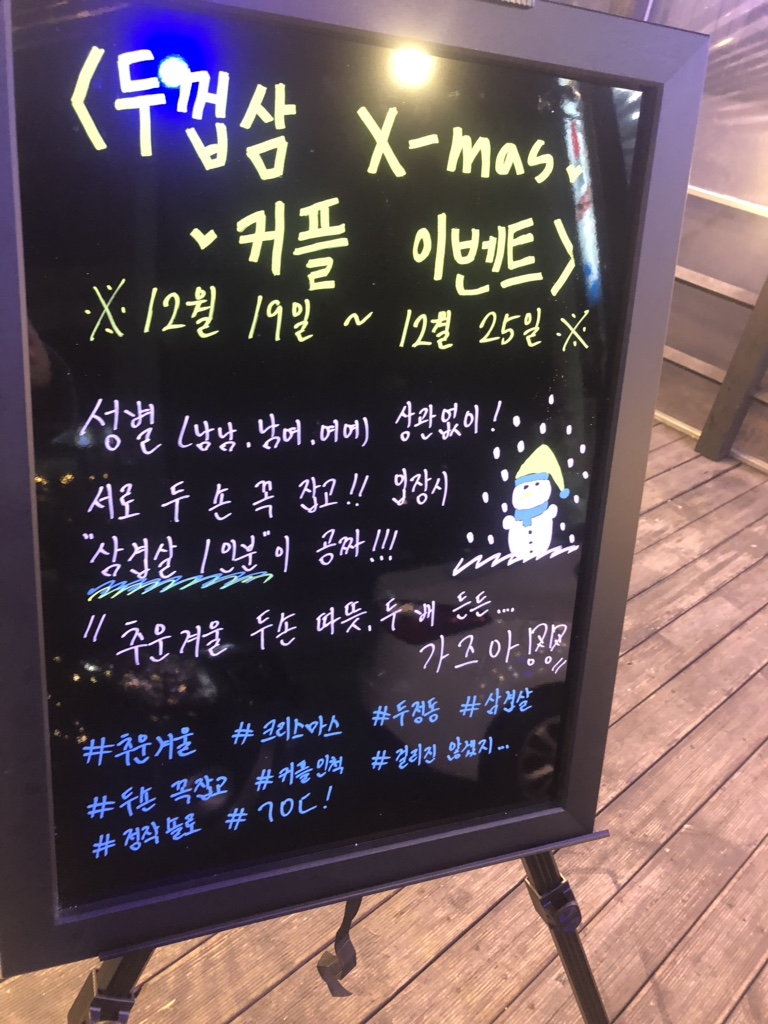 <두껍삼 X-mas.
♥커플 이벤트>
※12월 19일 ~ 12월 25일※
성별 (남남.남여.여여) 상관없이!
서로 두 손 꼭 잡고!! 입장시
"삼겹살 1인분"이 공짜!!!
"추운겨울 두손 따뜻, 두 배 든든....
가즈아"
#추운겨울 #크리스마스 #두정동 #삼겹살
#두손 꼭잡고 #커플인척 #걸리진 않겠지...
#정작 솔로 #ㄱㅇㄷ!